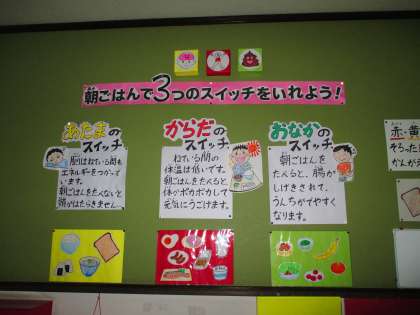 朝ごはんで3つのスイッチをいれよう!
あたまの
スイッチ
脳はねている間も
エネルギーをつかって
います。
朝ごはんをたべないと
頭がはたらきません。
からだの
スイッチ
ねている間の
体温は低いです。
朝ごはんをたべると
体がポカポカして
元気にうごけます。
おなかの
スイッチ
朝ごはんを
たべると、腸が
しげきされて、
うんちがでやすく
なります。
赤・黄
そろった
かんが